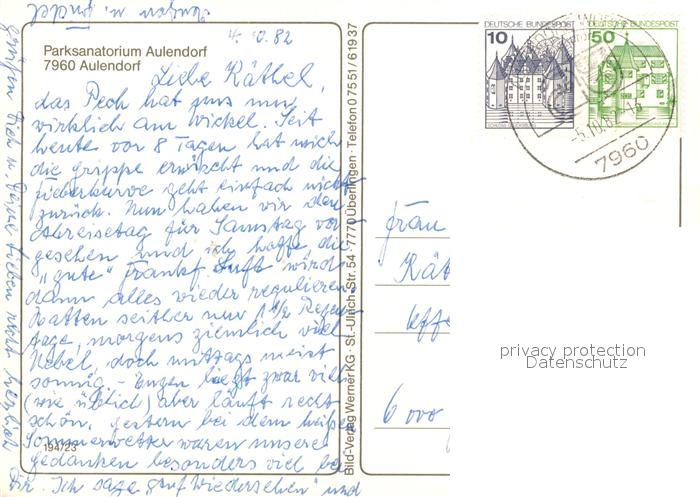 Parksanatorium Aulendorf
7960 Aulendorf
4.10.82
Liebe Käthel,
das Pech hat uns nun
wirklich am Wickel. Seit
heute vor 8 Tagen hat mich
die Grippe erwischt und die
Fieberkurve geht einfach nicht
zurück. Nun haben wir den
Abreisetag für Samstag vor
gesehen und ich hoffe, die
"gute" Frankf. Luft wird
dann alles wieder regulieren.
Hatten seither nur 1 1/2 Regen
tage, morgens ziemlich viel
Nebel, doch mittags meist
sonnig. - Eugen liegt zwar viel
(wie üblich) aber läuft recht
schön. Gestern bei dem heißen
Sommerwetter waren unsere
Gedanken besonders viel bei
Dir. Ich sage "auf Wiedersehen" und
grüßen Dich u. Deine Lieben recht herzlich
194/23
Bild-Verlag Werner KG · St.-Ulrich-Str. 54 · 7770 Überlingen · Telefon 07551/61937
DEUTSCHE BUNDESPOST
10
DEUTSCHE BUNDESPOST
50
-5.10.
7960
Frau
Kät
6000
privacy protection
Datenschutz